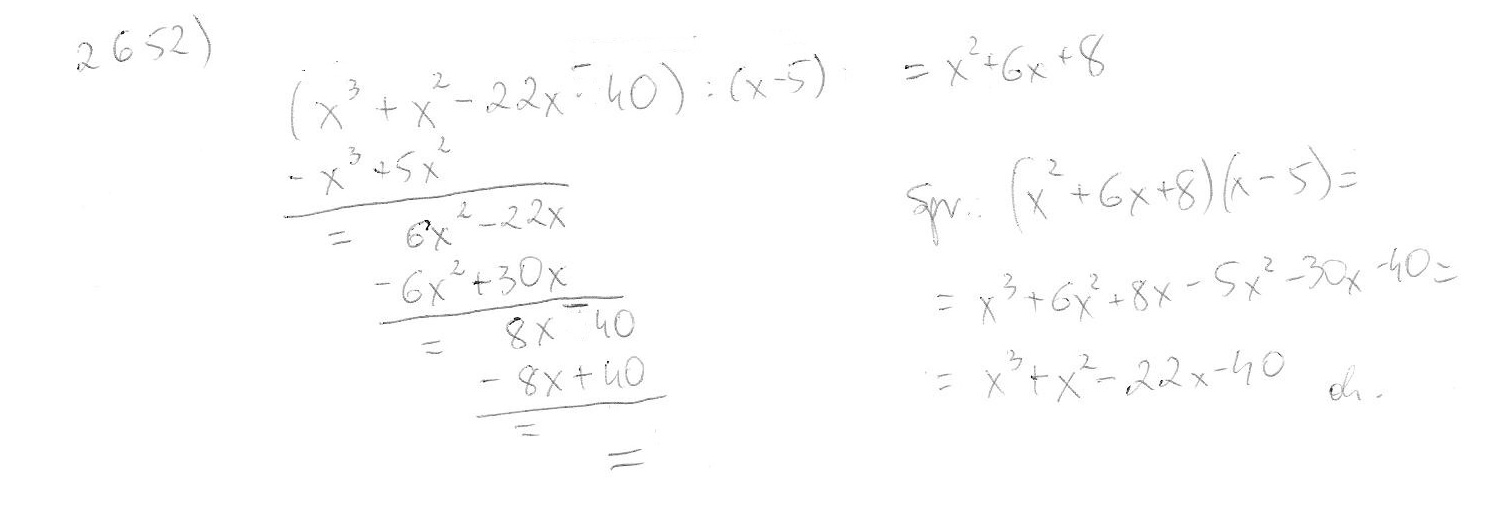 2652)
(x³ + x² - 22x - 40) : (x-5) = x²+6x+8
- x³ +5x²
= 6x² - 22x
- 6x² + 30x
= 8x - 40
- 8x + 40
= =
Spr.: (x² + 6x + 8)(x - 5) =
= x³ + 6x² + 8x - 5x² - 30x - 40 =
= x³ + x² - 22x - 40 ok.